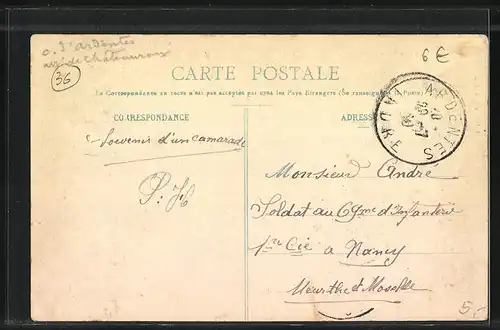 o. d'ardentes
36
6 €
CARTE POSTALE
La Correspondance au recto n'est pas acceptée par tous les Pays Étrangers (Se renseigner à la Poste)
CORRESPONDANCE
ADRESSE
ARDENTES
INDRE
Souvenir d'un camarade
Monsieur André
Soldat au 69me d'Infanterie
1re Cie à Nancy
Meurthe et Moselle
5.-